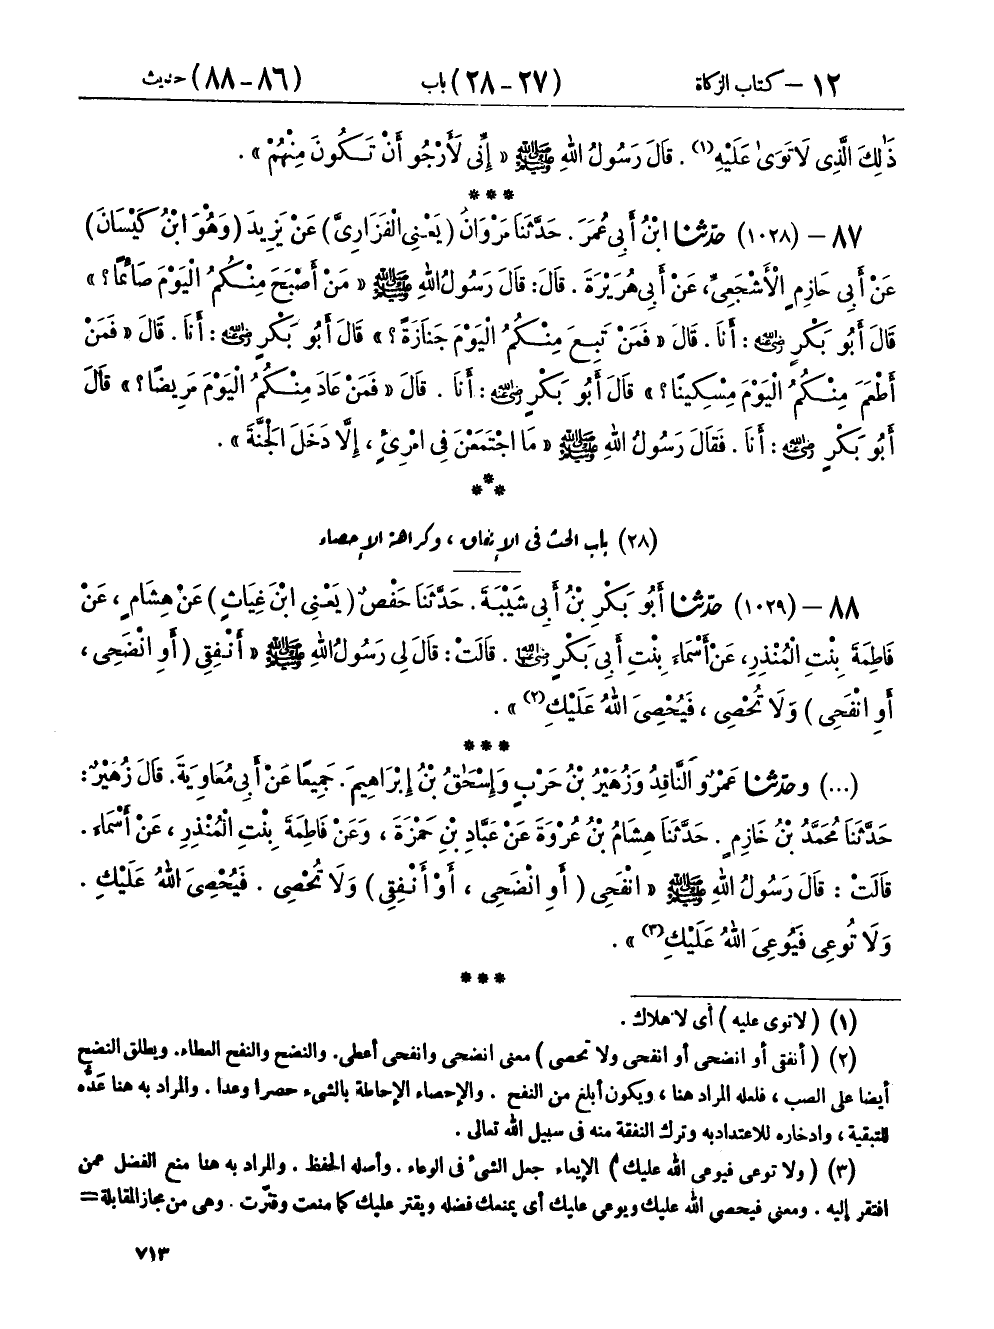 ١٢ – كتاب الزكاة (٢٧ – ٢٨) باب (٨٦ – ٨٨) حديث
ذَٰلِكَ الَّذِى لَا تَوَىٰ عَلَيْهِ(١) . قَالَ رَسُولُ اللهِ ﷺ « إِنِّى لَأَرْجُو أَنْ تَكُونَ مِنْهُمْ » .
***
٨٧ – (١٠٢٨) حَدَّثَنَا ابْنُ أَبِى عُمَرَ . حَدَّثَنَا مَرْوَانُ (يَعْنِى الْفَزَارِىَّ) عَنْ يَزِيدَ (وَهُوَ ابْنُ كَيْسَانَ)
عَنْ أَبِى حَازِمٍ الْأَشْجَعِىِّ، عَنْ أَبِى هُرَيْرَةَ . قَالَ: قَالَ رَسُولُ اللهِ ﷺ « مَنْ أَصْبَحَ مِنْكُمُ الْيَوْمَ صَائِمًا؟ »
قَالَ أَبُو بَكْرٍ رضي الله عنه : أَنَا . قَالَ « فَمَنْ تَبِعَ مِنْكُمُ الْيَوْمَ جَنَازَةً؟ » قَالَ أَبُو بَكْرٍ رضي الله عنه : أَنَا . قَالَ « فَمَنْ
أَطْعَمَ مِنْكُمُ الْيَوْمَ مِسْكِينًا؟ » قَالَ أَبُو بَكْرٍ رضي الله عنه : أَنَا . قَالَ « فَمَنْ عَادَ مِنْكُمُ الْيَوْمَ مَرِيضًا؟ » قَالَ
أَبُو بَكْرٍ رضي الله عنه : أَنَا . فَقَالَ رَسُولُ اللهِ ﷺ « مَا اجْتَمَعْنَ فِى امْرِئٍ ، إِلَّا دَخَلَ الْجَنَّةَ » .
***
(٢٨) باب الحث فى الإنفاق ، وكراهة الإحصاء
٨٨ – (١٠٢٩) حَدَّثَنَا أَبُو بَكْرِ بْنُ أَبِى شَيْبَةَ . حَدَّثَنَا حَفْصٌ (يَعْنِى ابْنَ غِيَاثٍ) عَنْ هِشَامٍ ، عَنْ
فَاطِمَةَ بِنْتِ الْمُنْذِرِ، عَنْ أَسْمَاءَ بِنْتِ أَبِى بَكْرٍ رضي الله عنها . قَالَتْ: قَالَ لِى رَسُولُ اللهِ ﷺ « أَنْفِقِى (أَوِ انْضَحِى ،
أَوِ انْفَحِى) وَلَا تُحْصِى ، فَيُحْصِىَ اللهُ عَلَيْكِ(٢) » .
***
(...) وحَدَّثَنَا عَمْرٌو النَّاقِدُ وَزُهَيْرُ بْنُ حَرْبٍ وَإِسْحَاقُ بْنُ إِبْرَاهِيمَ. جَمِيعًا عَنْ أَبِى مُعَاوِيَةَ. قَالَ زُهَيْرٌ:
حَدَّثَنَا مُحَمَّدُ بْنُ خَازِمٍ . حَدَّثَنَا هِشَامُ بْنُ عُرْوَةَ عَنْ عَبَّادِ بْنِ حَمْزَةَ ، وَعَنْ فَاطِمَةَ بِنْتِ الْمُنْذِرِ ، عَنْ أَسْمَاءَ .
قَالَتْ : قَالَ رَسُولُ اللهِ ﷺ « انْفَحِى ( أَوِ انْضَحِى ، أَوْ أَنْفِقِى ) وَلَا تُحْصِى . فَيُحْصِىَ اللهُ عَلَيْكِ .
وَلَا تُوعِى فَيُوعِىَ اللهُ عَلَيْكِ(٣) » .
***
(١) ( لا توى عليه ) أى لا هلاك .
(٢) ( أنفقى أو انضحى أو انفحى ولا تحصى ) معنى انضحى وانفحى أعطى. والنضح والنفح العطاء. ويطلق النضح
أيضا على الصب ، فلعله المراد هنا ، ويكون أبلغ من النفح . والإحصاء الإحاطة بالشىء حصرا وعدا . والمراد به هنا عَدُّه
للتبقية ، وادخاره للاعتداد به وترك النفقة منه فى سبيل الله تعالى .
(٣) ( ولا توعى فيوعى الله عليك ) الإيعاء جعل الشىء فى الوعاء . وأصله الحفظ . والمراد به هنا منع الفضل عمن
افتقر إليه . ومعنى فيحصى الله عليك ويوعى عليك أى يمنعك فضله ويقتر عليك كما منعت وقتّرت . وهى من مجاز المقابلة =
٧١٣